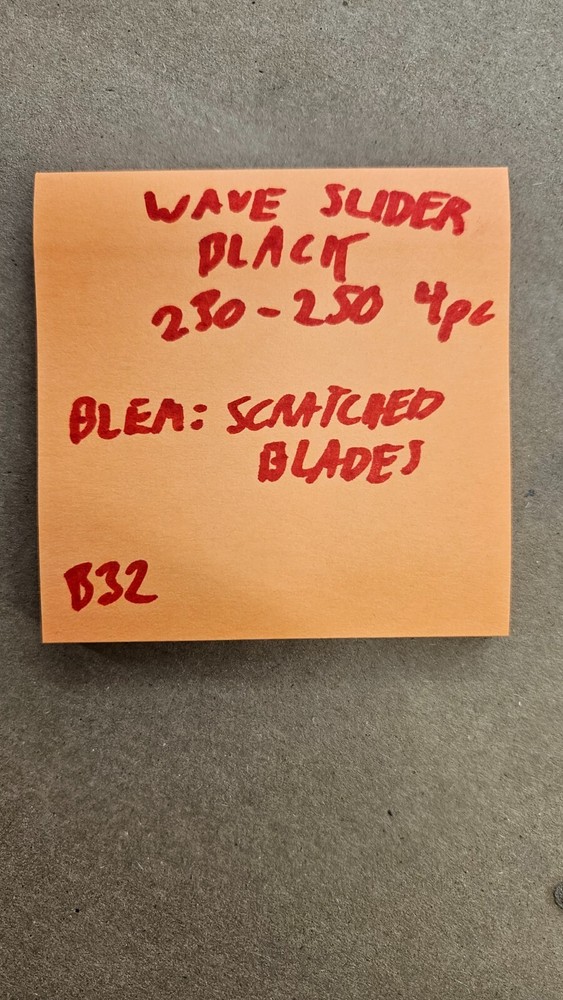 WAVE SLIDER
BLACK
230-250 4pc
BLEM: SCRATCHED
BLADES
B32